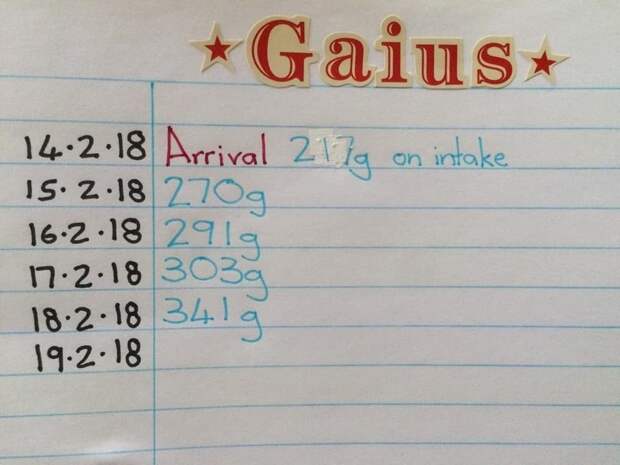 ★Gaius★
14.2.18 Arrival 217g on intake
15.2.18 270g
16.2.18 291g
17.2.18 303g
18.2.18 341g
19.2.18